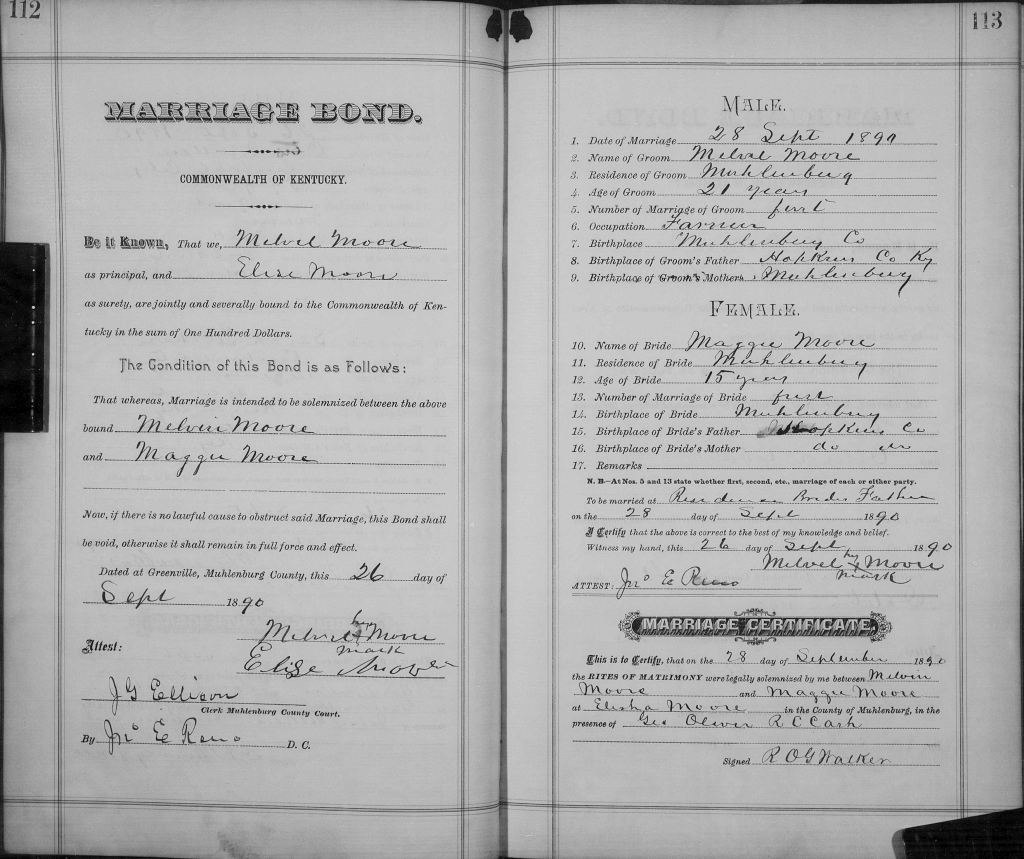 112
MARRIAGE BOND.
COMMONWEALTH OF KENTUCKY.
Be it Known, That we, Melvil Moore
as principal, and Elise Moore
as surety, are jointly and severally bound to the Commonwealth of Ken-
tucky in the sum of One Hundred Dollars.
The Condition of this Bond is as Follows:
That whereas, Marriage is intended to be solemnized between the above
bound Melvin Moore
and Maggie Moore
Now, if there is no lawful cause to obstruct said Marriage, this Bond shall
be void, otherwise it shall remain in full force and effect.
Dated at Greenville, Muhlenburg County, this 26 day of
Sept 1890
Attest:
his
Melvil Moore
mark
Elige Moore
J G Ellison
Clerk Muhlenburg County Court.
By Jno E Reno D. C.
113
MALE.
1. Date of Marriage 28 Sept 1890
2. Name of Groom Melvil Moore
3. Residence of Groom Muhlenburg
4. Age of Groom 21 years
5. Number of Marriage of Groom first
6. Occupation Farmer
7. Birthplace Muhlenburg Co
8. Birthplace of Groom's Father Hopkins Co Ky
9. Birthplace of Groom's Mother Muhlenburg
FEMALE.
10. Name of Bride Maggie Moore
11. Residence of Bride Muhlenburg
12. Age of Bride 15 years
13. Number of Marriage of Bride first
14. Birthplace of Bride Muhlenburg
15. Birthplace of Bride's Father Hopkins Co
16. Birthplace of Bride's Mother do do
17. Remarks
N. B.—At Nos. 5 and 13 state whether first, second, etc., marriage of each or either party.
To be married at Residence Brides Father
on the 28 day of Sept 1890
I Certify that the above is correct to the best of my knowledge and belief.
Witness my hand, this 26 day of Sept 1890
his
Melvil x Moore
mark
ATTEST: Jno E Reno
MARRIAGE CERTIFICATE.
This is to Certify, that on the 28 day of September 1890
the RITES OF MATRIMONY were legally solemnized by me between Melvin
Moore and Maggie Moore
at Elisha Moore in the County of Muhlenburg, in the
presence of Geo Oliver R C Cash
Signed R O G Walker